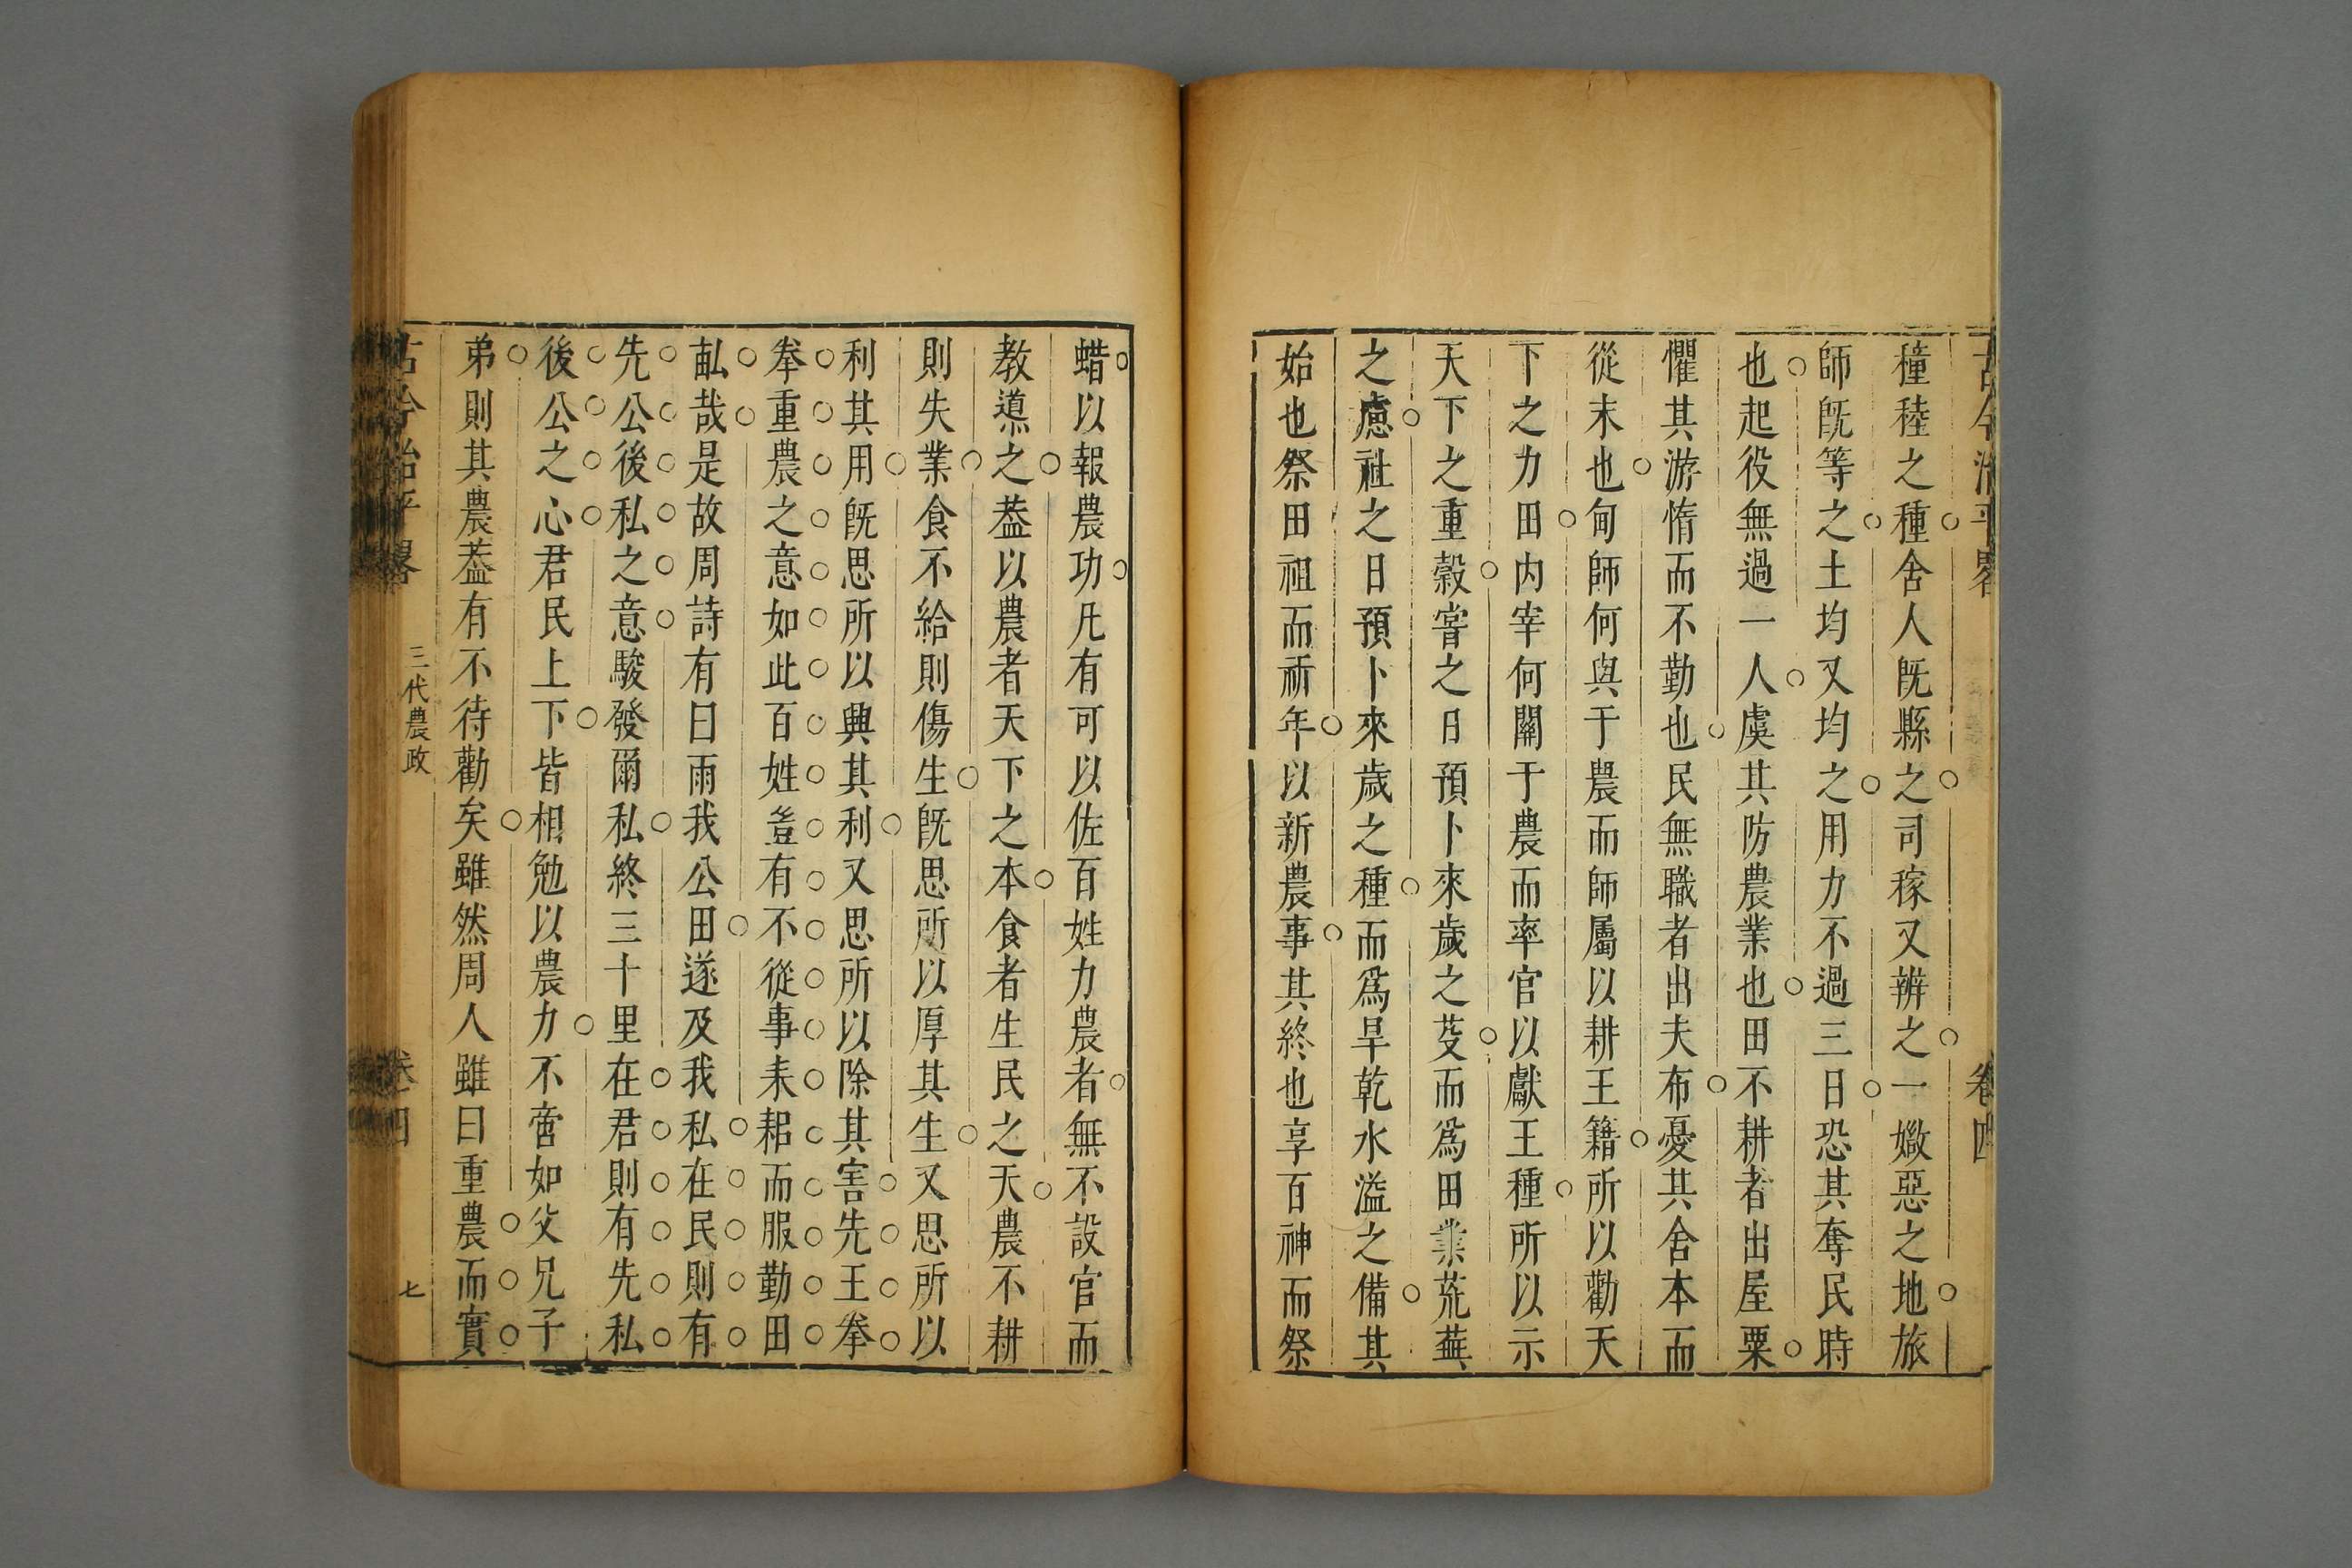 古今治平畧 卷四
穜稑之種舍人旣縣之司稼又辨之一媺惡之地旅
師旣等之土均又均之用力不過三日恐其奪民時
也起役無過一人虞其防農業也田不耕者出屋粟
懼其游惰而不勤也民無職者出夫布憂其舍本而
從末也甸師何與于農而師屬以耕王籍所以勸天
下之力田內宰何關于農而率官以獻王種所以示
天下之重穀甞之日預卜來歲之芟而爲田業荒蕪
之慮社之日預卜來歲之種而爲旱乾水溢之備其
始也祭田祖而祈年以新農事其終也享百神而祭
蜡以報農功凡有可以佐百姓力農者無不設官而
教導之葢以農者天下之本食者生民之天農不耕
則失業食不給則傷生旣思所以厚其生又思所以
利其用旣思所以興其利又思所以除其害先王拳
拳重農之意如此百姓豈有不從事耒耜而服勤田
畝哉是故周詩有曰雨我公田遂及我私在民則有
先公後私之意駿發爾私終三十里在君則有先私
後公之心君民上下皆相勉以農力不啻如父兄子
弟則其農葢有不待勸矣雖然周人雖曰重農而實
古今治平畧 三代農政 卷四 七